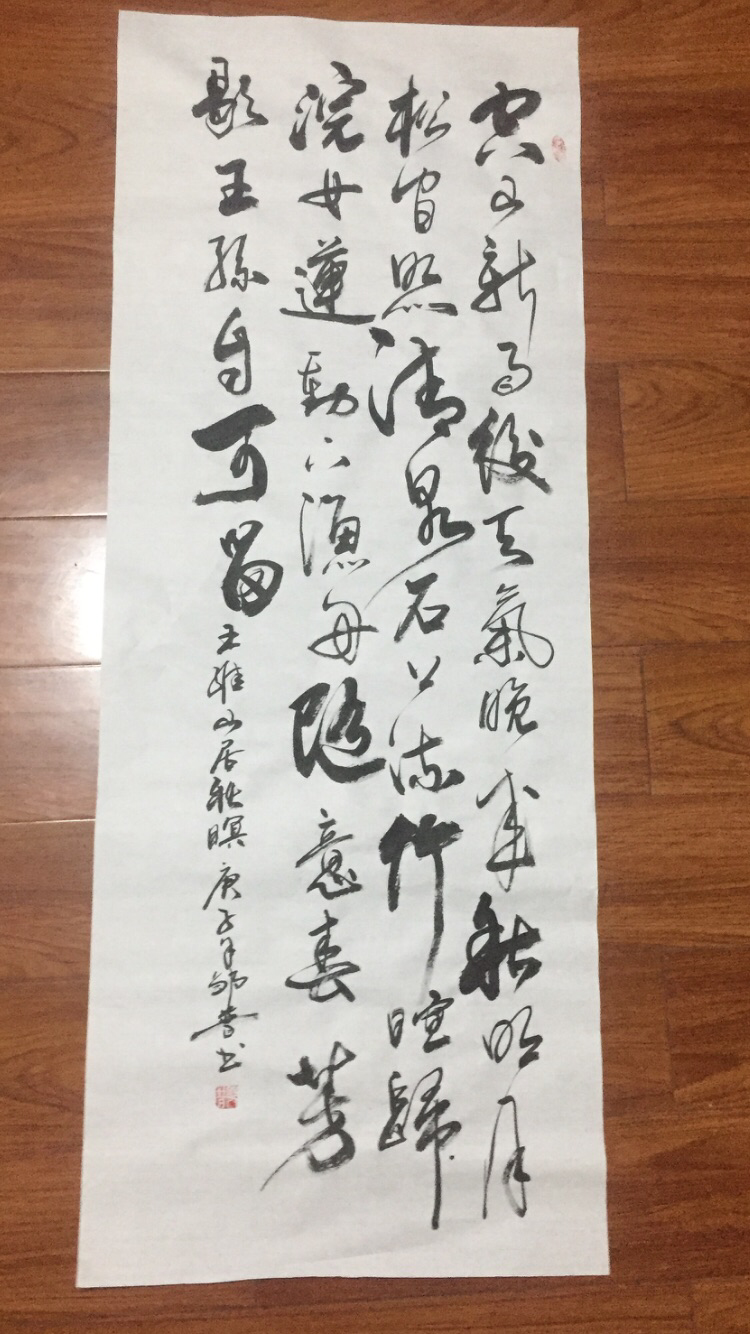 空山新雨後天氣晚来秋明月
松間照清泉石上流竹喧歸
浣女蓮動下漁舟随意春芳
歇王孫自可留
王維山居秋暝 庚子月邹普书